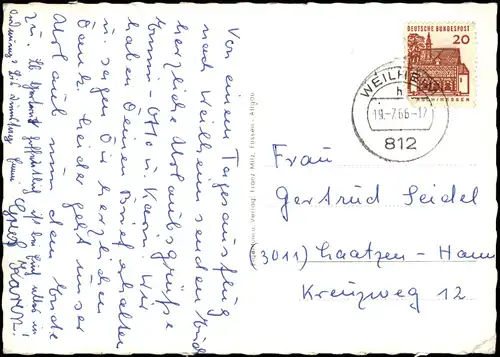 Von einem Tagesausflug
nach Weilheim senden Euch
herzliche Urlaubsgrüße
Emmi - Otto u. Karin. Wir
haben Deinen Brief erhalten
u. sagen Dir herzlichen
Dank. Leider geht unser
Urlaub nun dem Ende
zu.
Karin!
DEUTSCHE BUNDESPOST
20
LORSCH/HESSEN
WEILHEIM
h
19.-7.66-17
812
Frau
Gertrud Seidel
3011) Laatzen - Hann
Kreuzweg 12